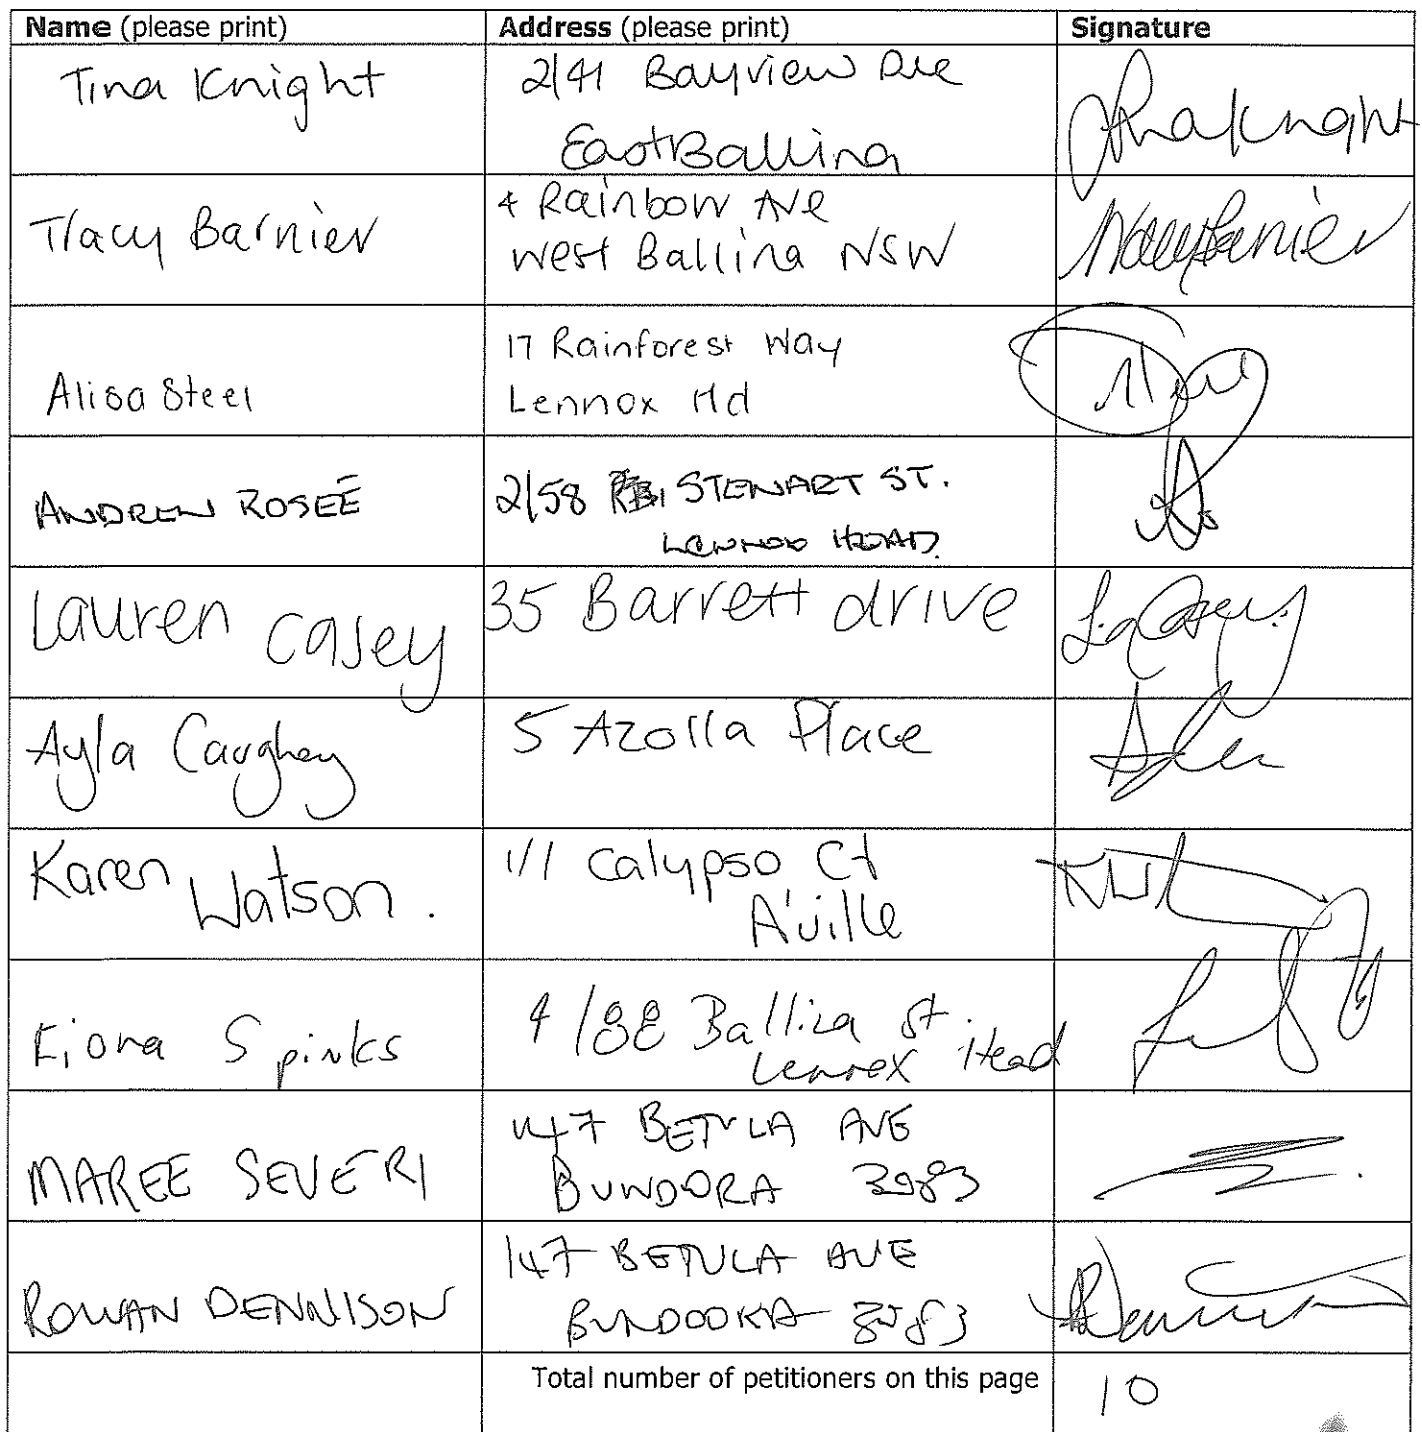 Name (please print) Address (please print) Signature
Tina Knight 2/41 Bayview Ave
East Ballina
Tracy Barnier 4 Rainbow Ave
West Ballina NSW
17 Rainforest Way
Alisa Steel Lennox Hd
ANDREW ROSEÉ 2/58 STEWART ST.
LENNOX HEAD.
Lauren Casey 35 Barrett drive
Ayla Caughey 5 Azolla Place
Karen Watson. 1/1 Calypso Ct
A'ville
Fiona Spinks 4/88 Ballina St.
Lennox Head
MAREE SEVERI 147 BETULA AVE
BUNDOORA 3083
ROWAN DENNISON 147 BETULA AVE
BUNDOORA 3083
Total number of petitioners on this page 10